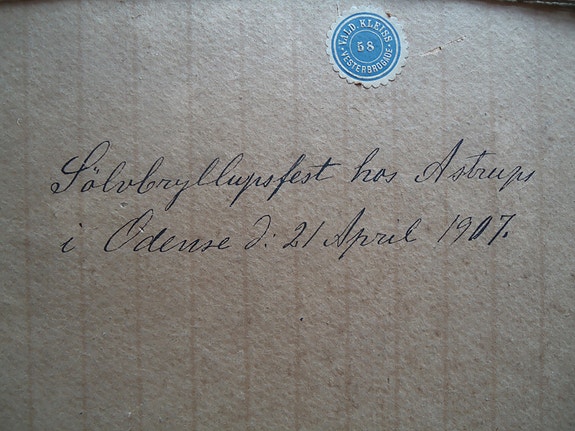 VALD. KLEISS
58
VESTERBROGADE
Sölvbryllupsfest hos Astrups
i Odense d: 21 April 1907.